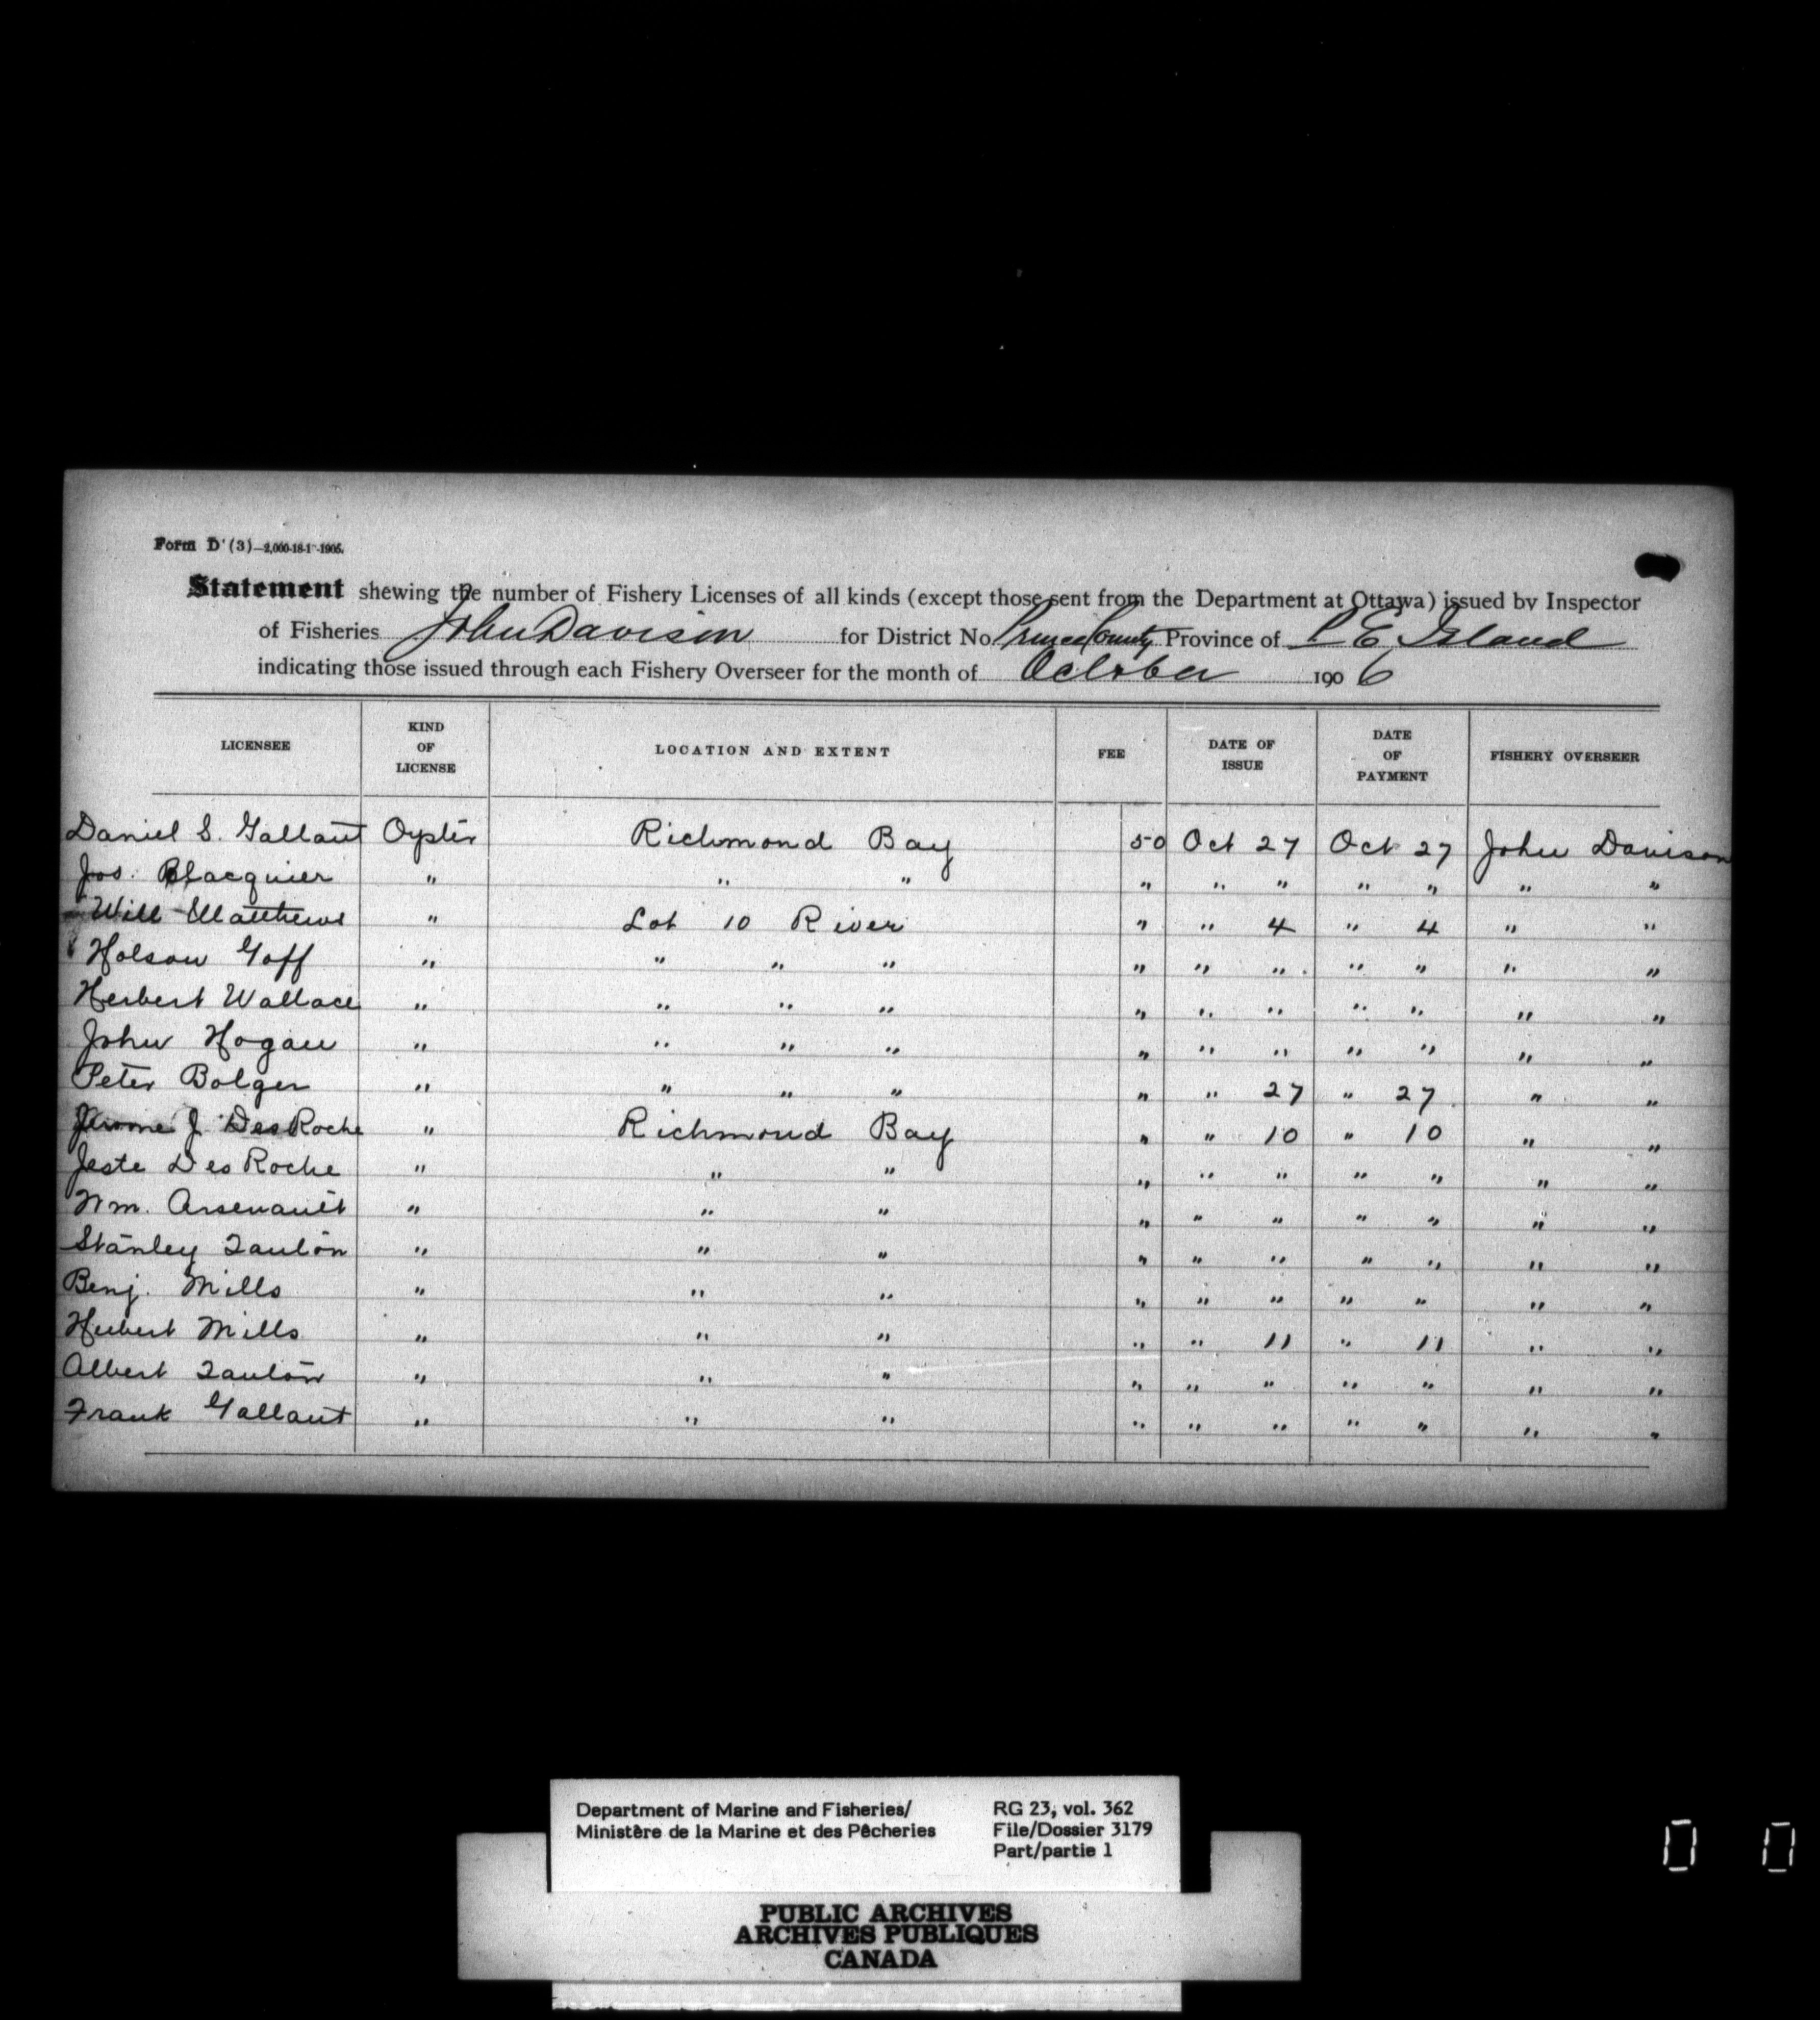 Form D (3)—2,000-18-1-1905.
Statement shewing the number of Fishery Licenses of all kinds (except those sent from the Department at Ottawa) issued by Inspector
of Fisheries John Davison for District No. Prince County Province of P E Island
indicating those issued through each Fishery Overseer for the month of October 1906
LICENSEE KIND OF LICENSE LOCATION AND EXTENT FEE DATE OF ISSUE DATE OF PAYMENT FISHERY OVERSEER
Daniel S. Gallant Oyster Richmond Bay 50 Oct 27 Oct 27 John Davison
Jos. Blacquier " " " " " " " " " "
Will Matthews " Lot 10 River " " 4 " 4 " "
Holson Goff " " " " " " " " " " "
Herbert Wallace " " " " " " " " " " "
John Hogan " " " " " " " " " " "
Peter Bolger " " " " " " 27 " 27 " "
Jerome J. DesRoche " Richmond Bay " " 10 " 10 " "
Jeste DesRoche " " " " " " " " " "
Wm. Arsenault " " " " " " " " " "
Stanley Taulon " " " " " " " " " "
Benj. Mills " " " " " " " " " "
Herbert Mills " " " " " 11 " 11 " "
Albert Taulon " " " " " " " " " "
Frank Gallant " " " " " " " " " "
Department of Marine and Fisheries/ RG 23, vol. 362
Ministère de la Marine et des Pêcheries File/Dossier 3179
Part/partie 1
PUBLIC ARCHIVES
ARCHIVES PUBLIQUES
CANADA
0 0